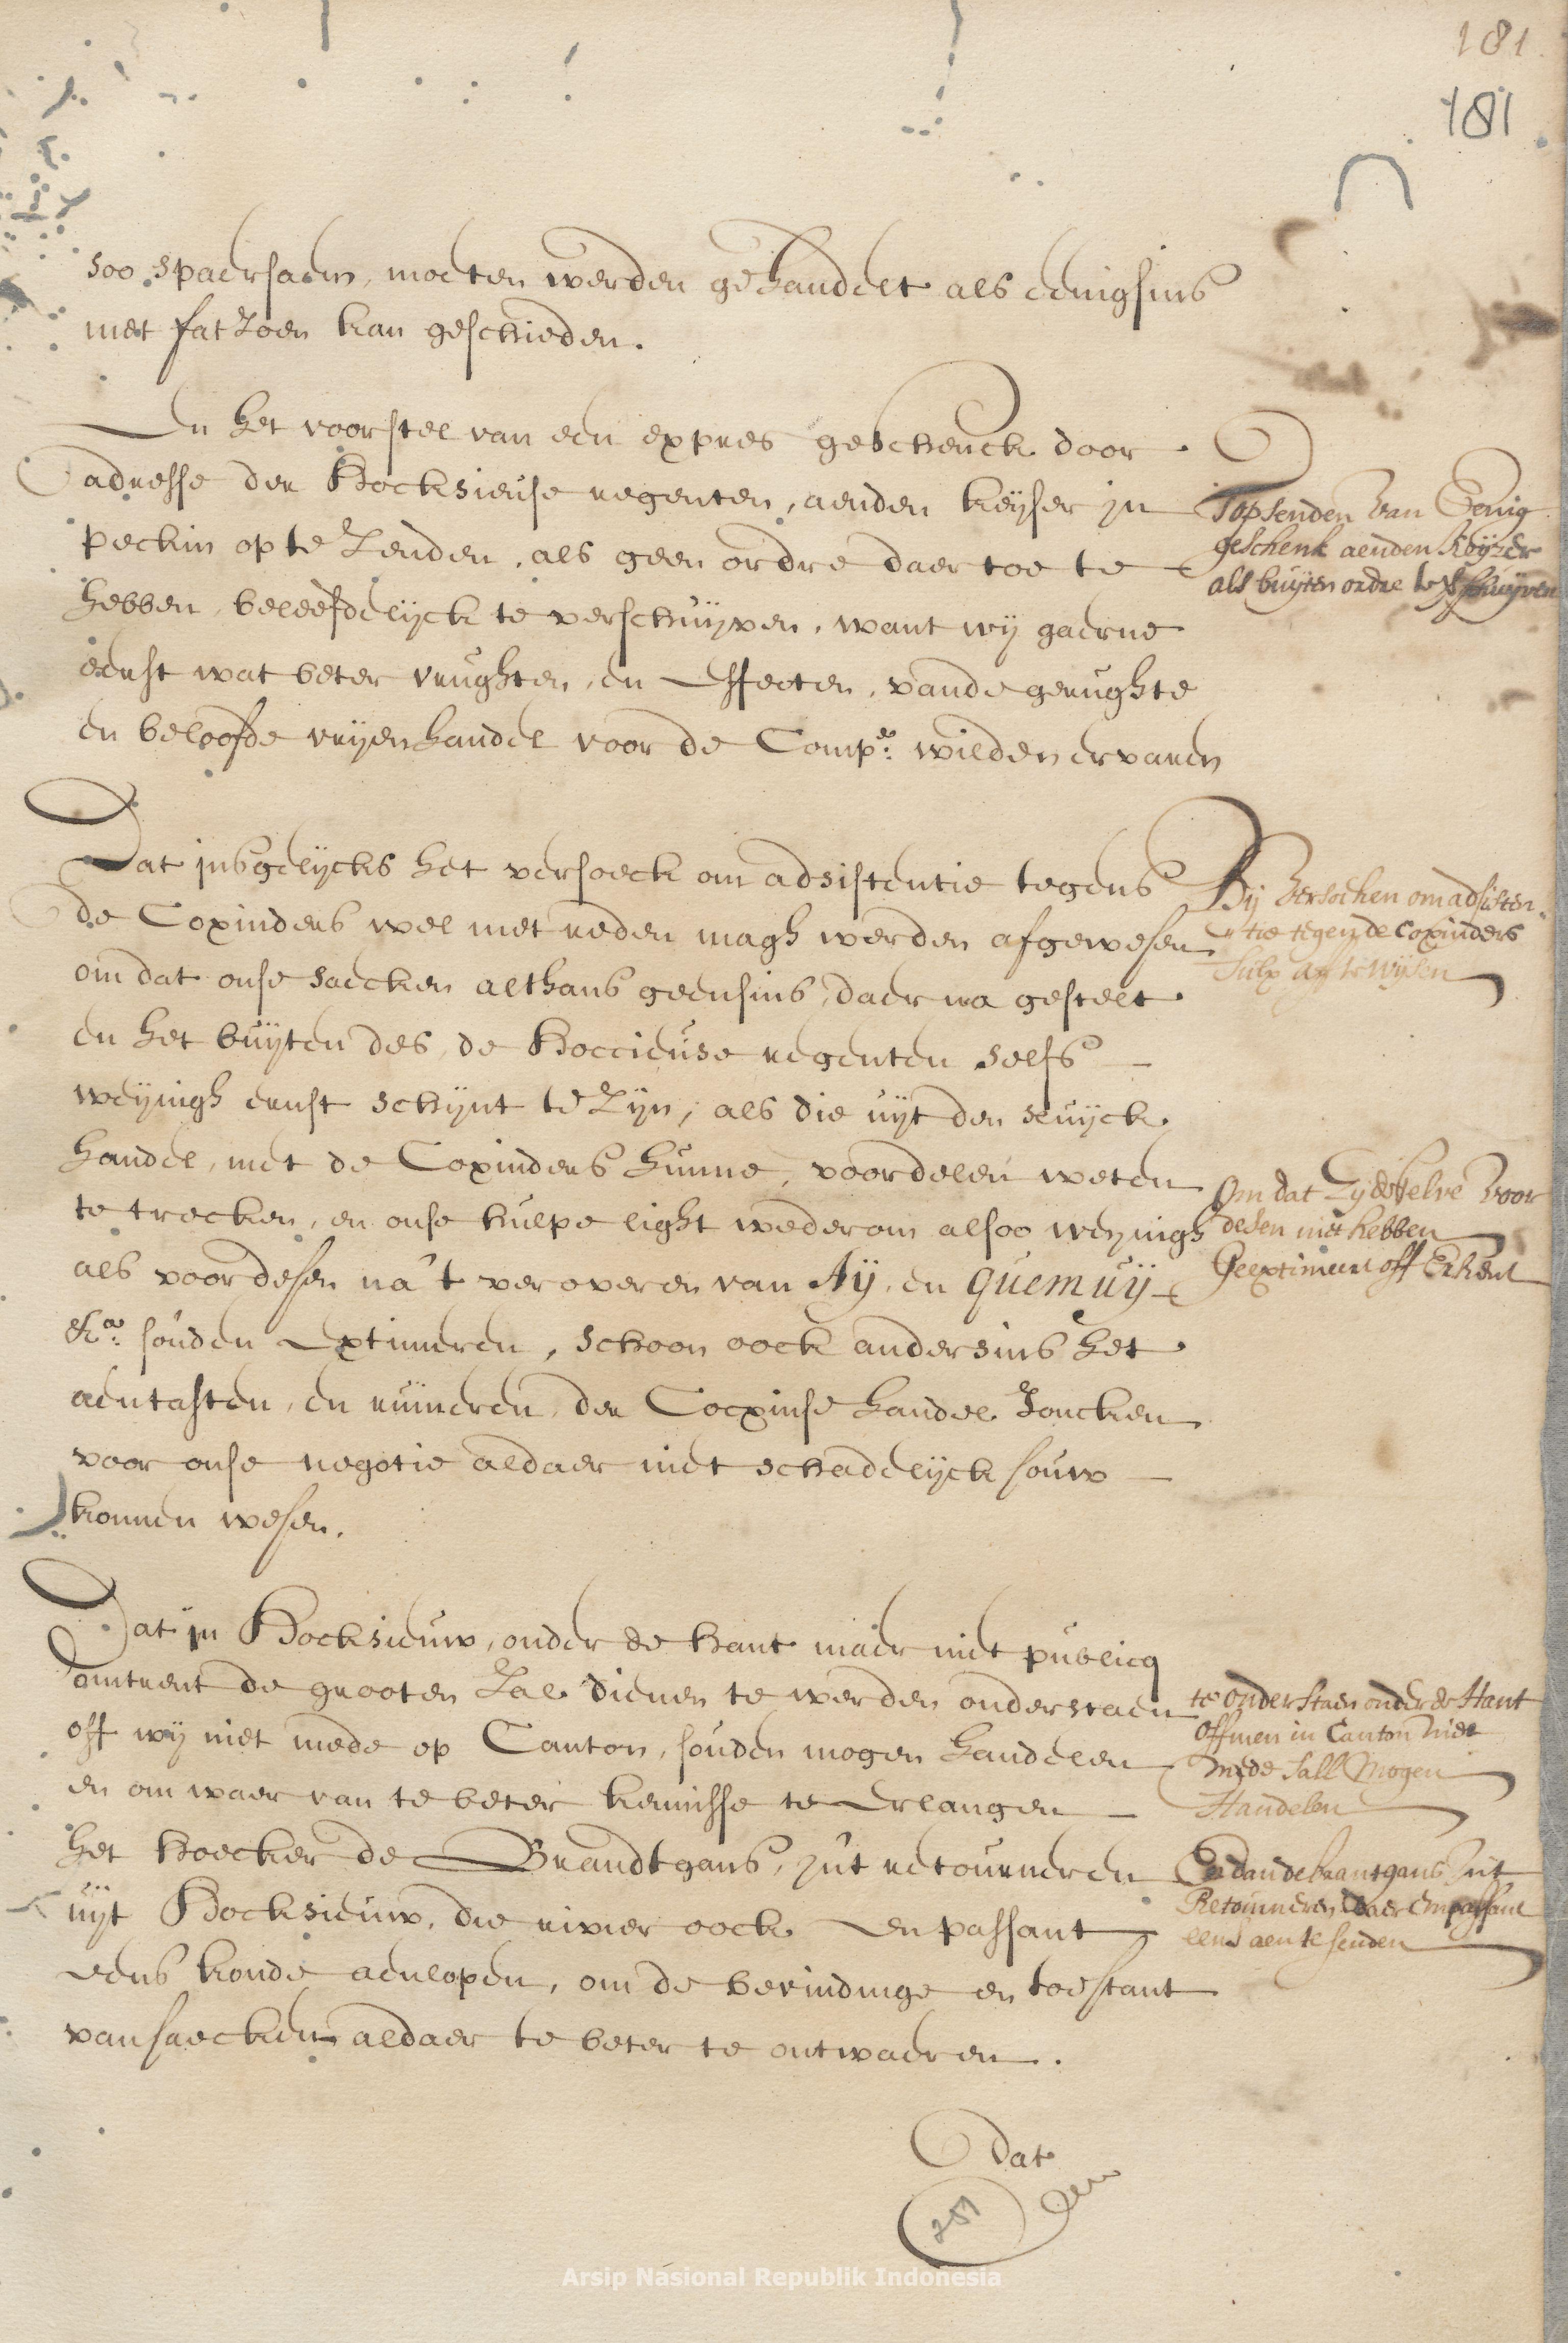 181
181
soo spaersaem, moeten werden gehandelt als eenighsins
met fatzoen kan geschieden.
En het voorstel van een expres geschenck door
adresse der Hocksieuse regenten, aenden keijser in
Peckin op te Zenden, als geen ordre daer toe te
hebben, beleefdelijck te verschuijven, want wij gaerne
eerst wat beter vrughten, en Effecten, vande gerughte
en beloofde vrijen handel voor de Compe: wilden ervaren
T opsenden van Eenig
geschenk aenden Keijzer
als buijten ordre te verschuijven
Dat insgelijcks het versoeck om adsistentie tegens
de Coxinders wel met reden magh werden afgewesen
om dat onse saecken althans geensins, daer na gestelt
en het buijten des, de Hoccieuse regenten selfs
weijnigh ernst schijnt te Zijn, als die uijt den sluijck
handel, met de Coxinders hunne, voordelen weten
te trecken, en onse hulpe light wederom alsoo weijnigh
als voor desen na't veroveren van Aij, en Quemuij
&a: souden Extimeren, schoon oock andersins het
aentasten, en ruineren, der Cocxinse handel Joncken
voor onse negotie aldaer niet schadelijck souw
konnen wesen.
Bij Versoeken om adsisten-
tie tegen de Coxinders
sulx aff te Wijsen
Om dat Zij deselve voor
desen niet hebben
Geextimeert off Erkent
Dat in Hocksieuw, onder de hant maer niet publicq
omtrent de grooten Zal dienen te werden onderstaen
off wij niet mede op Canton, souden mogen handelen
en om waer van te beter kennisse te Erlangen
het hoecker de Brandtgans, in't retourneren
uijt Hocksieuw, die rivier oock En passant
eens konde aenlopen, om de bevindinge en toestant
van saecken aldaer te beter te ontwaeren.
te onderstaen onder de Hant
Off men in Canton niet
mede sall Mogen
Handelen
En dan de brantgans int
Retourneren daer Empassant
eens aen te senden
dat
281
Arsip Nasional Republik Indonesia